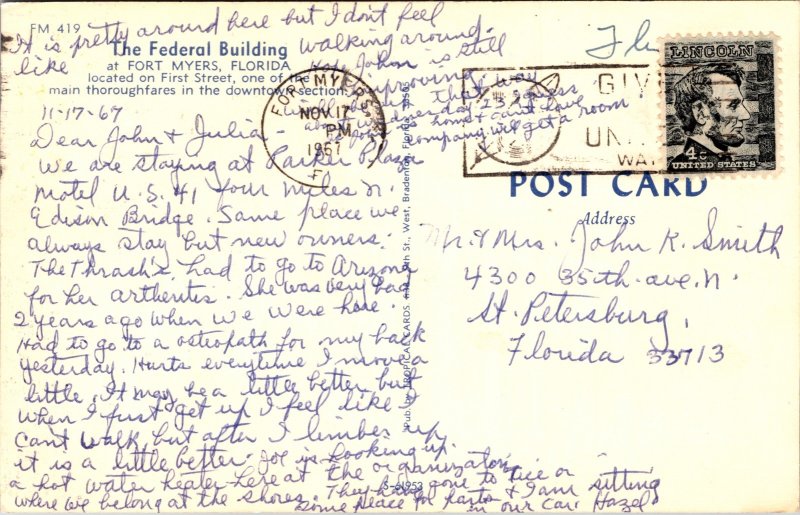 FM 419
The Federal Building
at FORT MYERS, FLORIDA
located on First Street, one of the
main thoroughfares in the downtown section.
11-17-67
Dear John & Julia -
We are staying at Parker Plaza
Motel U.S. 41 four miles n.
Edison Bridge. Same place we
always stay but new owners.
The Thrash's had to go to Arizona
for her arthertis. She was very bad
2 years ago when we were here.
Had to go to a osteopath for my back
yesterday. Hurts everytime I move a
little. It may be a little better but
when I first get up I feel like I
can't walk but after I limber up
it is a little better. Joe is hooking up
a hot water heater here at the organization
where we belong at the shores. They have gone to Tice or
some place for parts & I am sitting
in our car. Hazel
It is pretty around here but I don't feel
like walking around.
Hope John is still
improving
that way
home & can't have
company will get a room
FORT MYERS
NOV 17
PM
1967
GIVE
UNI
WAY
LINCOLN
4c
UNITED STATES
POST CARD
Address
Mr. & Mrs. John K. Smith
4300 35th. ave. N.
St. Petersburg,
Florida 33713
S-61953